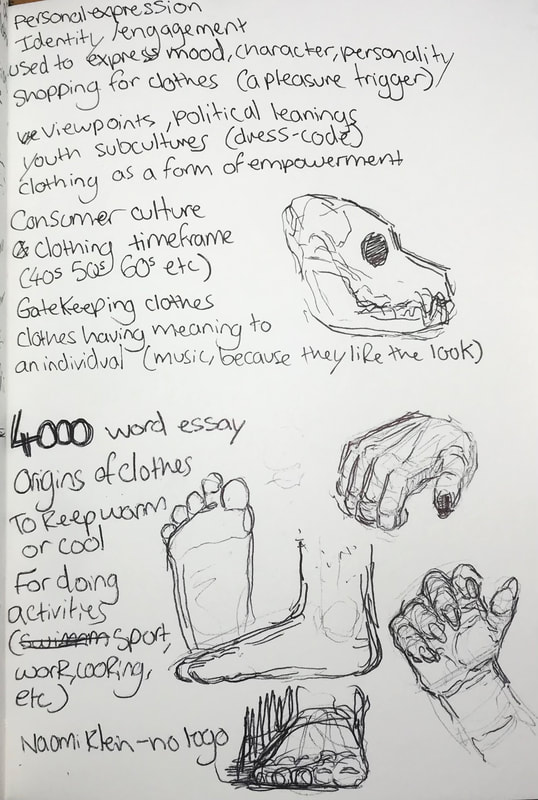 Personal expression
Identity/engagement
used to express mood, character, personality
shopping for clothes (a pleasure trigger)
viewpoints, political leanings
youth subcultures (dress-code)
clothing as a form of empowerment
Consumer culture
clothing timeframe
(40s 50s 60s etc)
Gatekeeping clothes
clothes having meaning to
an individual (music, because they like the look)
4000 word essay
Origins of clothes
To keep warm
or cool
For doing
activities
(sport,
work, cooking,
etc)
Naomi Klein - no logo